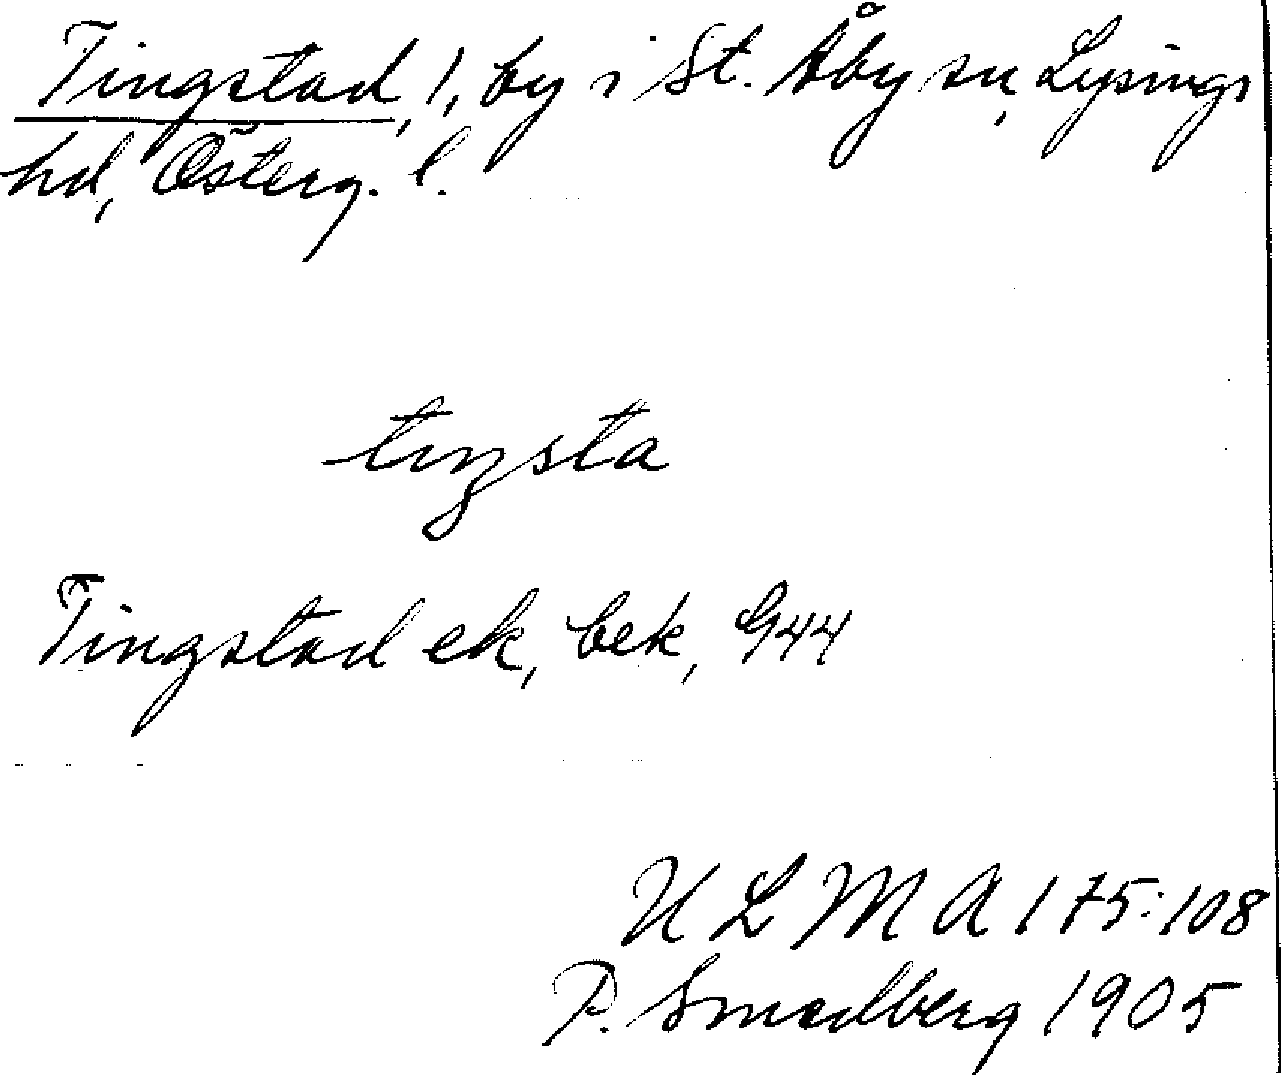 Tingstad, 1, by i St. Åby sn, Lysings
hd, Österg. l.
tıŋsta
Tingstad ek, bek, G44
ULMA 175:108
P. Smedberg 1905